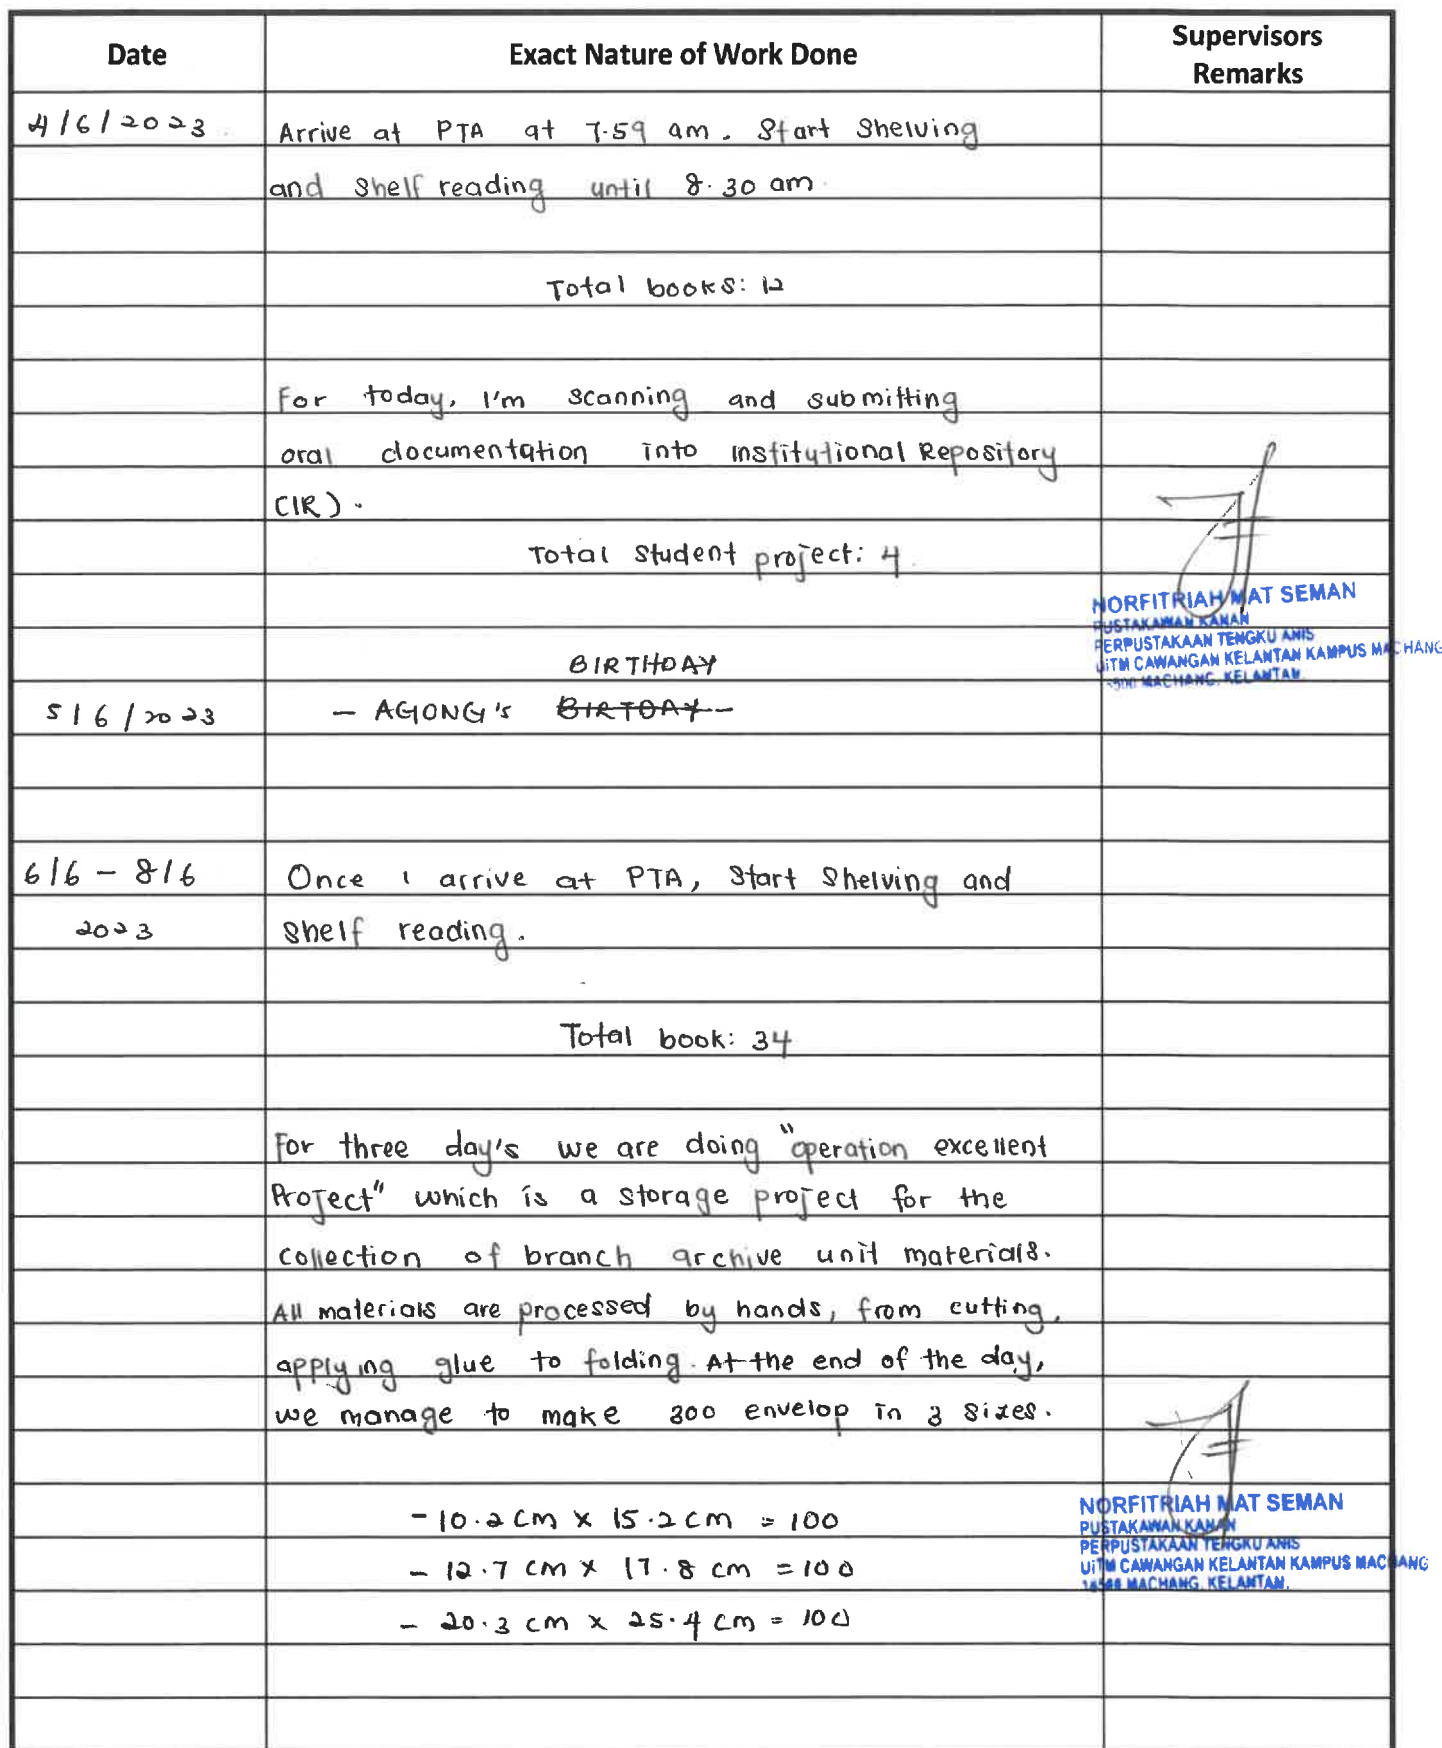 Date
Exact Nature of Work Done
Supervisors
Remarks
4/6/2023
Arrive at PTA at 7.59 am. Start Shelving
and Shelf reading until 8.30 am.
Total books: 12
For today, I'm scanning and submitting
oral documentation into Institutional Repository
(IR).
Total Student project: 4
NORFITRIAH MAT SEMAN
PUSTAKAWAN KANAN
PERPUSTAKAAN TENGKU ANIS
UiTM CAWANGAN KELANTAN KAMPUS MACHANG
MACHANG, KELANTAN.
BIRTHDAY
5/6/2023
- AGONG's BIRTDAY
6/6 - 8/6
2023
Once I arrive at PTA, Start Shelving and
Shelf reading.
Total book: 34
For three day's we are doing "operation excellent
Project" which is a storage project for the
collection of branch archive unit materials.
All materials are processed by hands, from cutting,
applying glue to folding. At the end of the day,
we manage to make 300 envelop in 3 sizes.
- 10.2 cm x 15.2 cm = 100
- 12.7 cm x 17.8 cm = 100
- 20.3 cm x 25.4 cm = 100
NORFITRIAH MAT SEMAN
PUSTAKAWAN KANAN
PERPUSTAKAAN TENGKU ANIS
UiTM CAWANGAN KELANTAN KAMPUS MACHANG
MACHANG, KELANTAN.